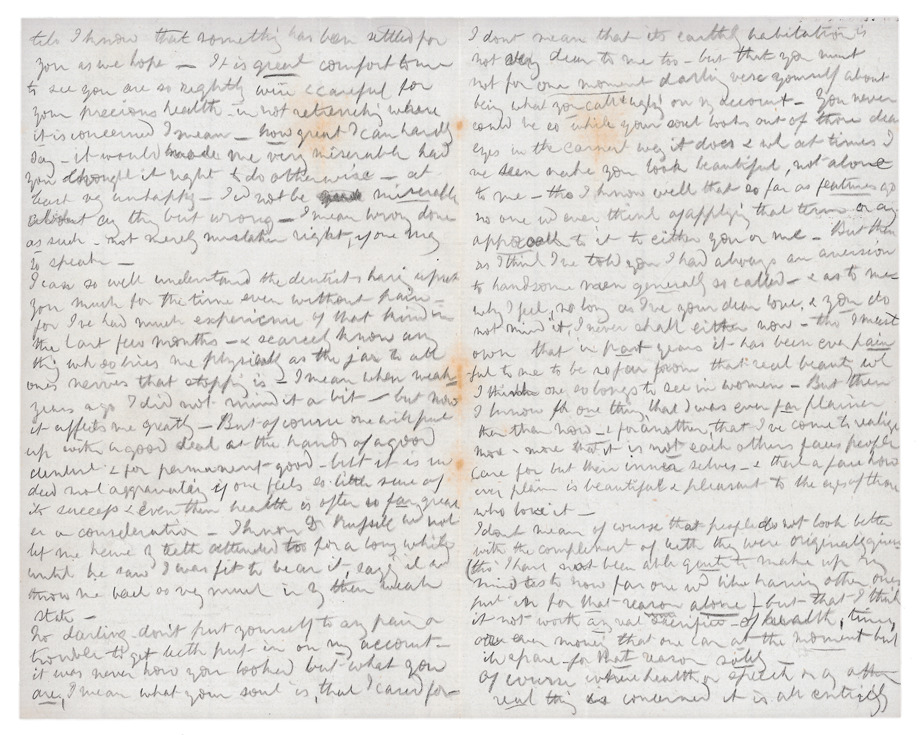 till I know that something has been settled for
you as we hope — It is great comfort to me
to see you are so rightly wise & careful for
your precious health – in not retrenching where
it is concerned I mean – how great I can hardly
say – it would have made me very miserable had
you thought it right to do otherwise – at
least very unhappy – I'd not be miserable
about any thing but wrong – I mean wrong done
as such – not merely mistaken right, if one may
so speak –
I can so well understand the dentist's having upset
you much for the time even without pain –
for I've had much experience of that kind in
the last few months – & scarcely know any
thing which tries me physically as the jar to all
one's nerves that stopping is – I mean when weak
years ago I did not mind it a bit – but now
it affects me greatly – But of course one will put
up with a good deal at the hands of a good
dentist & for permanent good – but it is in
deed not aggravating if one feels so little sure of
its success & even then health is often so far great
er a consideration – I know Dr Russell wd not
let me have my teeth attended to for a long while
until he saw I was fit to bear it, says it wd
throw me back so very much in my then weak
state –
No darling don't put yourself to any pain or
trouble to get teeth put in on my account –
it was never how you looked but what you
are, I mean what your soul is, that I cared for –
I don't mean that its earthly habitation is
not very dear to me too – but that you must
not for one moment darling vex yourself about
being what you call (ugly) on my account – You never
could be so while your soul looks out of those dear
eyes in the earnest way it does & wh at times I
've seen make you look beautiful, not alone
to me – tho I know well that so far as features go
no one wd ever think of applying that term or any
approach to it to either you or me – But then
as I think I've told you I had always an aversion
to handsome men generally so called – & as to me
why I feel, so long as I've your dear love, & you do
not mind it, I never shall either now – tho I must
own that in past years it has been even pain
ful to me to be so far from that real beauty wh
I think one so longs to see in women – But then
I know for one thing that I was even far plainer
then than now – & for another, that I've come to realize
more & more that it is not each others faces people
care for but their inner selves – & that a face how
ever plain is beautiful & pleasant to the eyes of those
who love it –
I don't mean of course that people do not look better
with the complement of teeth they were originally given
(tho' I have not been able quite to make up my
mind as to how far one wd like having other ones
put in for that reason alone) – but that I think
it not worth any real sacrifice – of health, time,
or even money that one can at the moment but
ill spare – for that reason solely –
Of course where health or speech or any other
real thing is concerned it is all entirely